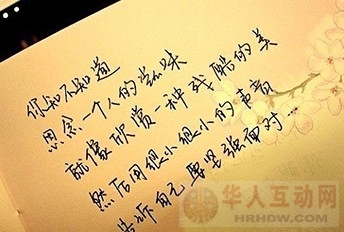 你知不知道
思念一个人的滋味
就像欣赏一种残酷的美
然后用很小很小的声音
告诉自己要坚强面对…
华人互动网
HRHDW.COM